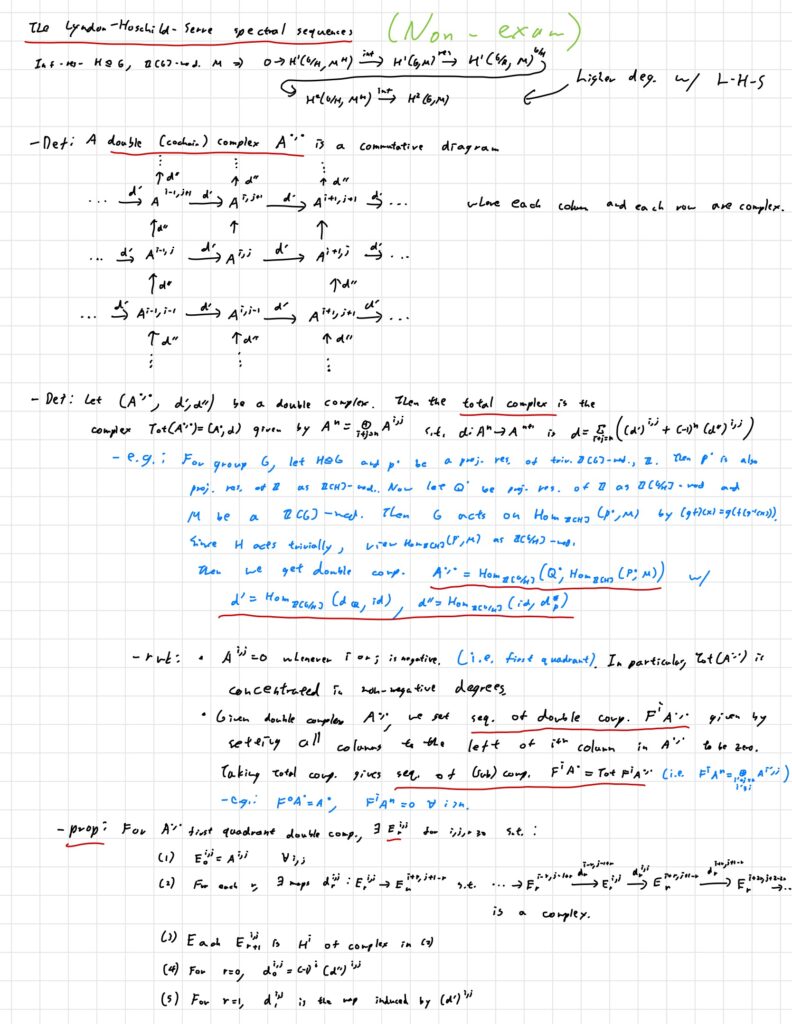 The Lyndon-Hoschild-Serre spectral sequences (Non-exam)
Inf-res: H⊴G, ℤ[G]-mod. M ⇒ 0→H¹(G/H, M^H) →^{inf} H¹(G,M) →^{res} H¹(H, M)^{G/H}
H²(G/H, M^H) →^{inf} H²(G,M) ← higher deg. w/ L-H-S
- Def: A double (cochain) complex A^{•,•} is a commutative diagram
⋮ ⋮ ⋮
↑d'' ↑d'' ↑d''
... →^{d'} A^{i-1,j+1} →^{d'} A^{i,j+1} →^{d'} A^{i+1,j+1} →^{d'} ... where each column and each row are complex.
↑d'' ↑ ↑
... →^{d'} A^{i-1,j} →^{d'} A^{i,j} →^{d'} A^{i+1,j} →^{d'} ...
↑d'' ↑d''
... →^{d'} A^{i-1,j-1} →^{d'} A^{i,j-1} →^{d'} A^{i+1,j+1} →^{d'} ...
↑d'' ↑d'' ↑d''
⋮ ⋮ ⋮
- Def: Let (A^{•,•}, d',d'') be a double complex. Then the total complex is the
complex Tot(A^{•,•})=(A^•,d) given by A^n = ⊕_{i+j=n} A^{i,j} s.t. d: A^n→A^{n+1} is d=Σ_{i+j=n}((d')^{i,j} + (-1)^n (d'')^{i,j})
- e.g.: For group G, let H⊴G and P^• be a proj. res. of triv. ℤ[G]-mod., ℤ. Then P^• is also
proj. res. of ℤ as ℤ[H]-mod.. Now let Q^• be proj. res. of ℤ as ℤ[G/H]-mod and
M be a ℤ[G]-mod. Then G acts on Hom_{ℤ[H]}(P^•,M) by (gf)(x)=g(f(g⁻¹(x))).
Since H acts trivially, view Hom_{ℤ[H]}(P^•,M) as ℤ[G/H]-mod.
Then we get double comp. A^{•,•} = Hom_{ℤ[G/H]}(Q^•, Hom_{ℤ[H]}(P^•,M)) w/
d' = Hom_{ℤ[G/H]}(d_Q, id), d''= Hom_{ℤ[G/H]}(id, d_P^*)
- rmk: • A^{i,j}=0 whenever i or j is negative. (i.e. first quadrant). In particular, Tot(A^{•,•}) is
concentrated in non-negative degrees.
• Given double complex A^{•,•}, we set seq. of double comp. F^iA^{•,•} given by
setting all columns to the left of i^{th} column in A^{•,•} to be zero.
Taking total comp. gives seq. of (sub) comp. F^iA^• = Tot F^iA^{•,•} (i.e. F^iA^n = ⊕_{i'+j=n, i'≥i} A^{i',j})
- e.g.: F⁰A^•=A^•, F^iA^n=0 ∀ i>n.
- prop: For A^{•,•} first quadrant double comp., ∃ E_r^{i,j} for i,j,r≥0 s.t.:
(1) E_0^{i,j} = A^{i,j} ∀i,j
(2) For each r, ∃ maps d_r^{i,j}: E_r^{i,j} → E_r^{i+r,j+1-r} s.t. ... → E_r^{i-r,j-1+r} →^{d_r^{i-r,j-1+r}} E_r^{i,j} →^{d_r^{i,j}} E_r^{i+r,j+1-r} →^{d_r^{i+r,j+1-r}} E_r^{i+2r,j+2-2r} → ...
is a complex.
(3) Each E_{r+1}^{i,j} is H^i of complex in (2)
(4) For r=0, d_0^{i,j} = (-1)^i (d'')^{i,j}
(5) For r=1, d_1^{i,j} is the map induced by (d')^{i,j}